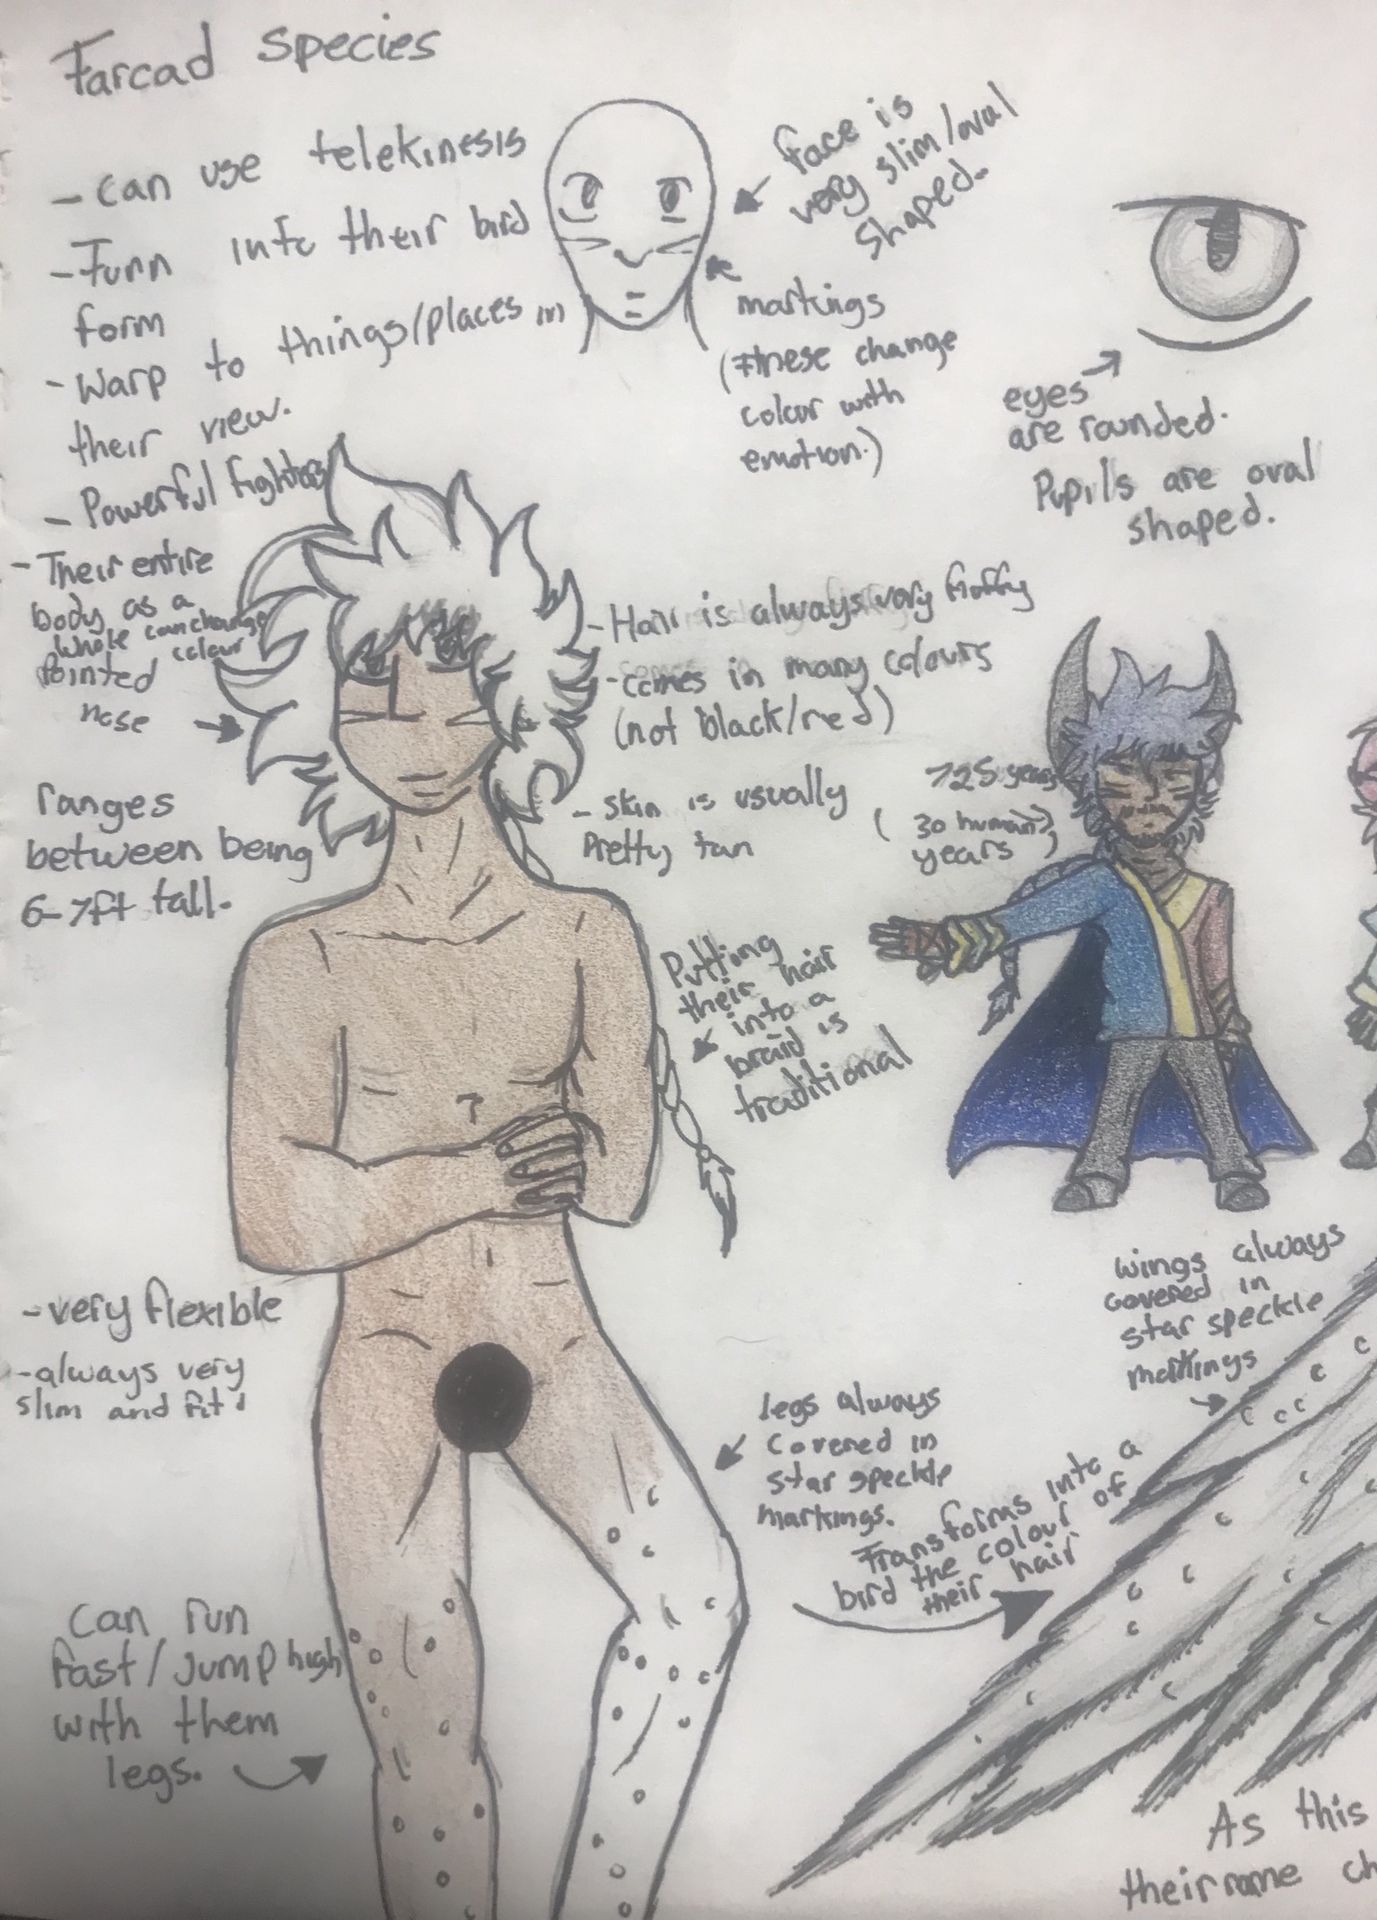 Farcad Species
- Can use telekinesis
- Turn into their bird
form
- Warp to things/places in
their view.
- Powerful fighters
- Their entire
body as a
whole can change
colour
Pointed
nose
ranges
between being
6-7ft tall.
- very flexible
- always very
slim and fit!
Can run
fast/jump high
with them
legs.
face is
very slim/oval
shaped.
markings
(these change
colour with
emotion.)
eyes
are rounded.
Pupils are oval
shaped.
- Hair is always very fluffy
- comes in many colours
(not black/red)
- Skin is usually
Pretty tan
725 years
(30 human
years)
Putting
their hair
into a
braid is
traditional
legs always
covered in
star speckle
markings.
wings always
covered in
star speckle
markings
Transforms into a
bird the colour of
their hair
As this
their name ch